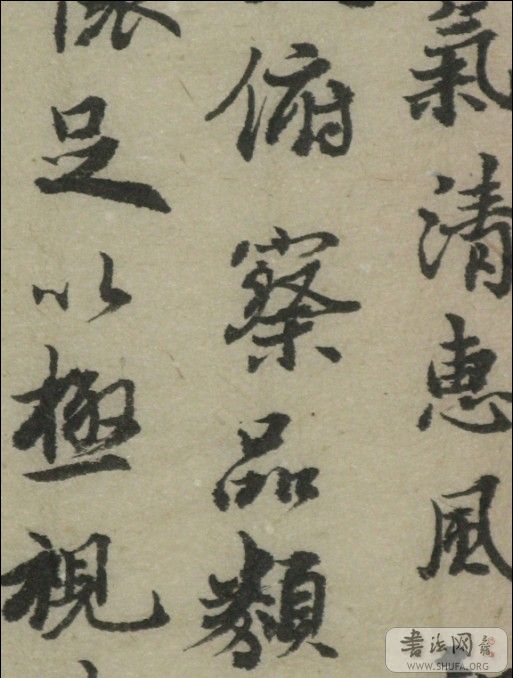 氣清惠風
俯察品類
懷足以極視
書法网
WWW.SHUFA.ORG